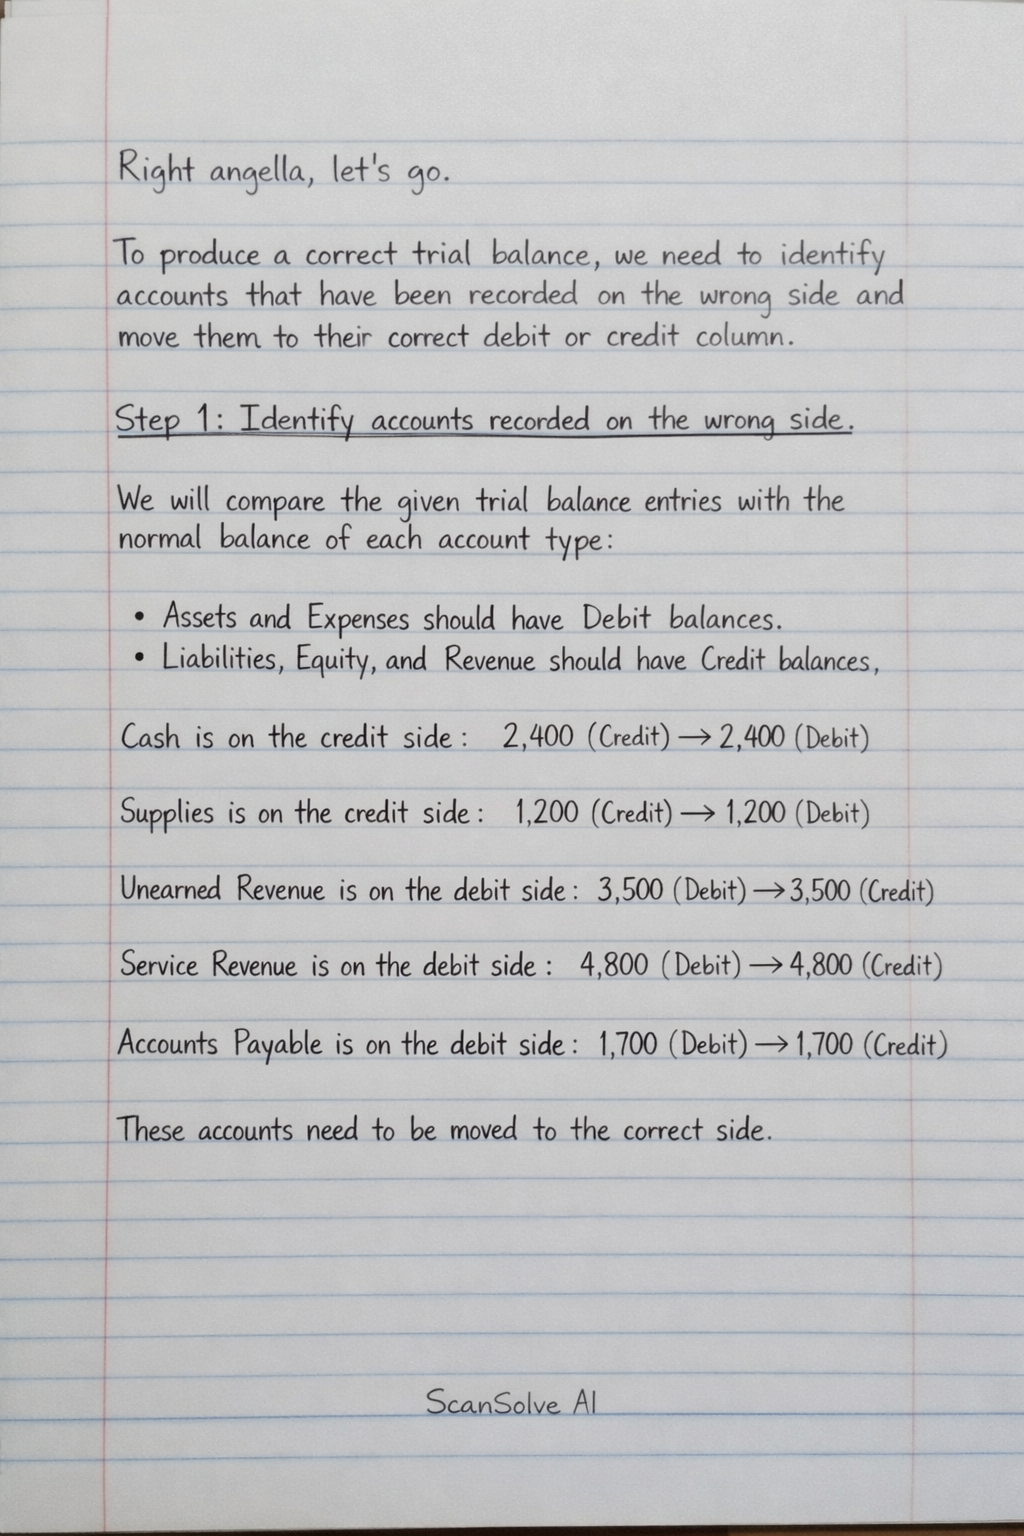 Right angella, let's go.
To produce a correct trial balance, we need to identify
accounts that have been recorded on the wrong side and
move them to their correct debit or credit column.
Step 1: Identify accounts recorded on the wrong side.
We will compare the given trial balance entries with the
normal balance of each account type:
• Assets and Expenses should have Debit balances.
• Liabilities, Equity, and Revenue should have Credit balances,
Cash is on the credit side: 2,400 (Credit) → 2,400 (Debit)
Supplies is on the credit side: 1,200 (Credit) → 1,200 (Debit)
Unearned Revenue is on the debit side: 3,500 (Debit) → 3,500 (Credit)
Service Revenue is on the debit side: 4,800 (Debit) → 4,800 (Credit)
Accounts Payable is on the debit side: 1,700 (Debit) → 1,700 (Credit)
These accounts need to be moved to the correct side.
ScanSolve AI